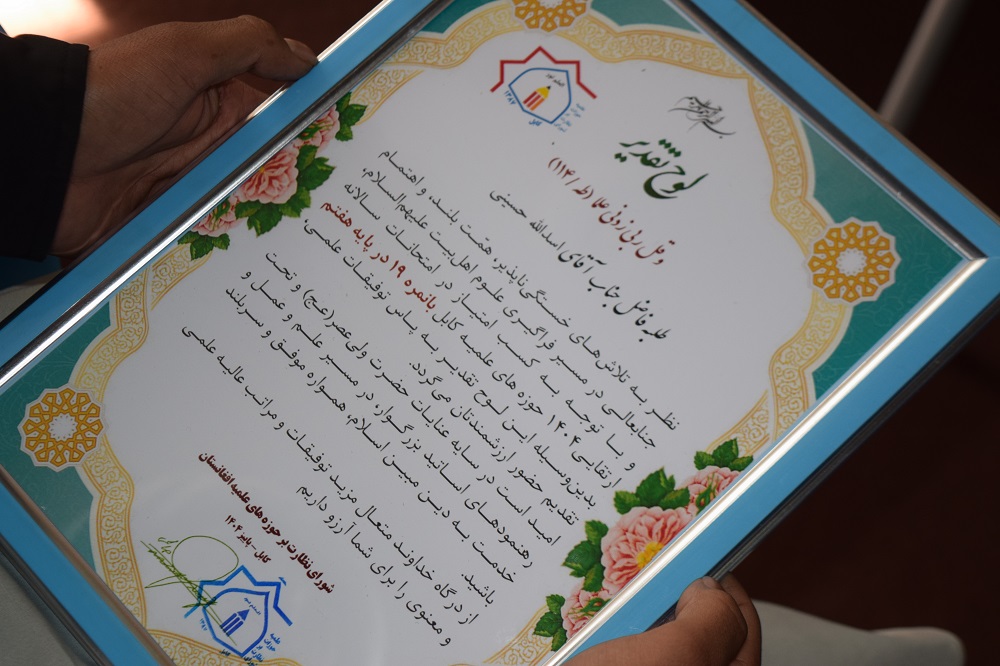 بسم الله الرحمن الرحیم
۱۳۸۲
کابل
لوح تقدیر
وقل ربی زدنی علما (طه/۱۱۴)
طلبه فاضل جناب آقای اسدالله حسینی
نظر به تلاش‌های خستگی ناپذیر، همّت بلند، و اهتمام
جنابعالی در مسیر فراگیری علوم اهل‌بیت علیهم‌السلام،
و با توجه به کسب امتیاز در امتحانات سالانه
ارتقایی ۱۴۰۴ حوزه های علمیه کابل بانمره ۱۹ در پایه هفتم
بدین‌وسیله این لوح تقدیر به پاس توفیقات علمی،
تقدیم حضور ارزشمندتان می‌گردد.
امید است در سایه عنایات حضرت ولی‌عصر(عج) و تحت
رهنمودهای اساتید بزرگوار، در مسیر علم و عمل و
خدمت به دین مبین اسلام، همواره موفق و سربلند
باشید.
از درگاه خداوند متعال مزید توفیقات و مراتب عالیه علمی
و معنوی را برای شما آرزو داریم
شورای نظارت بر حوزه‌های علمیه افغانستان
کابل - پاییز ۱۴۰۴